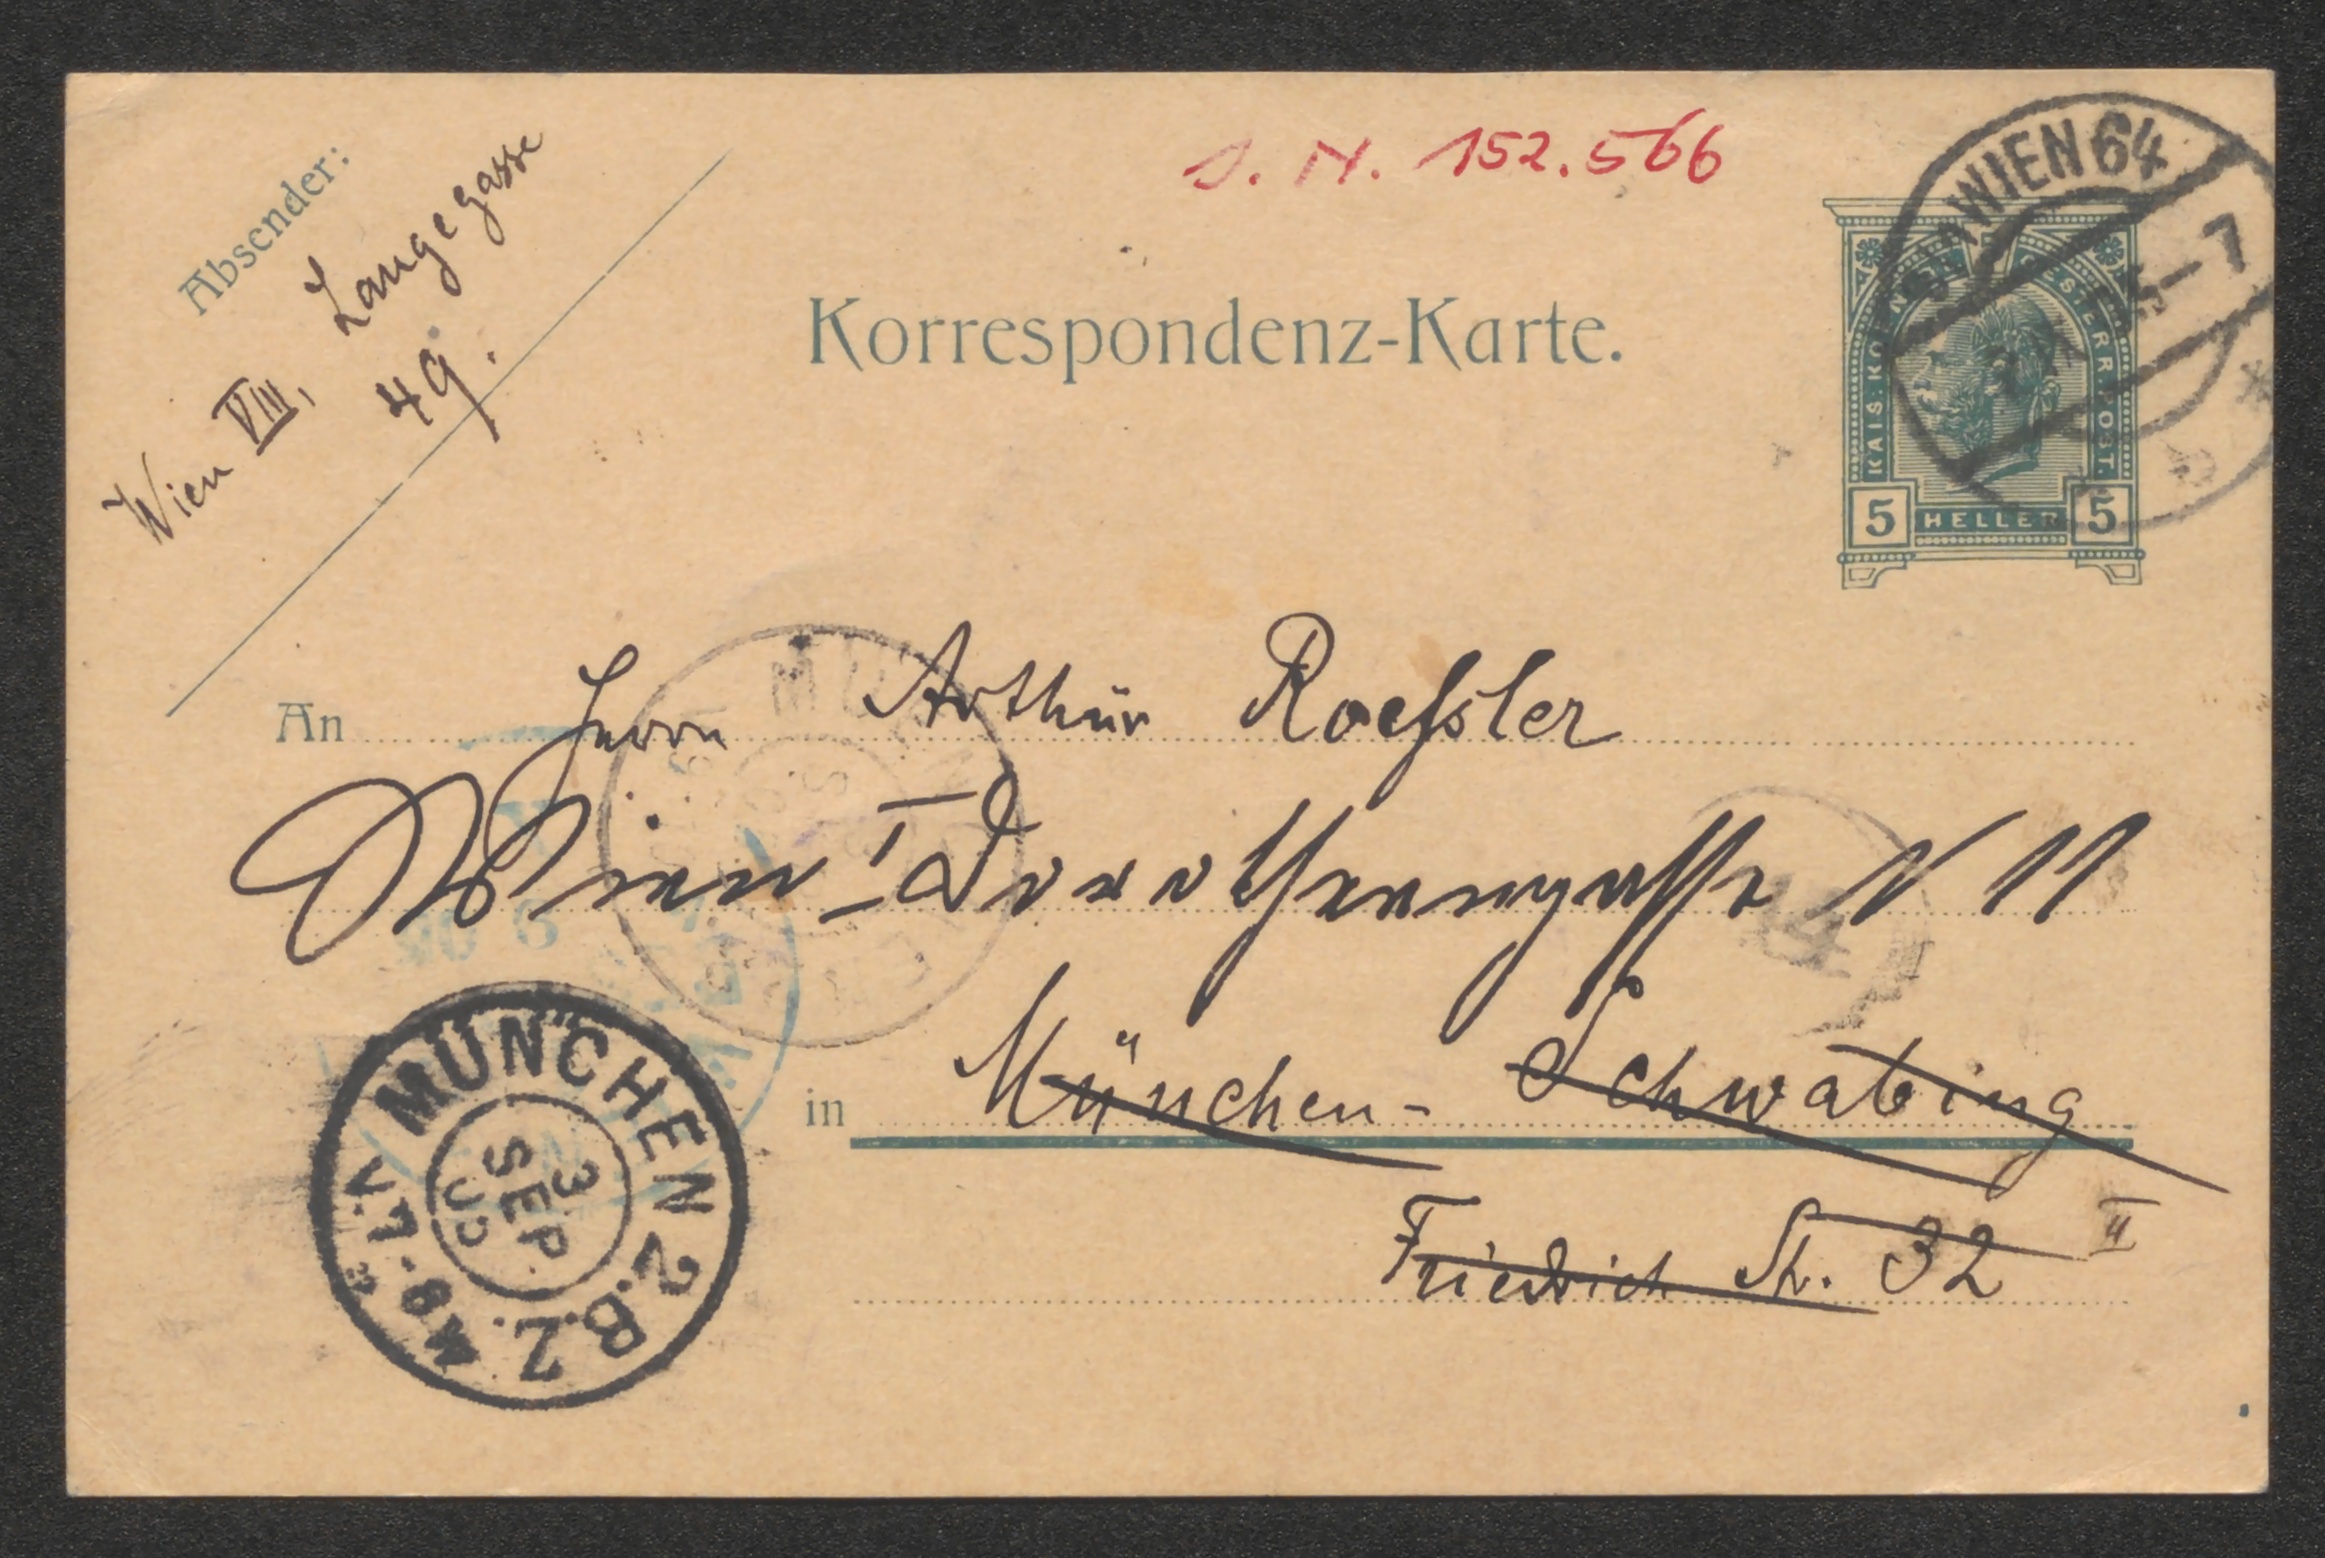 Absender:
Wien VIII,
Langegasse
49.
J. N. 152.566
Korrespondenz-Karte.
WIEN 64
KAIS. KOENIGL. OESTERR. POST.
5 HELLER 5
An Herrn Arthur Roessler
Wien I Dorotheergasse N 11
in München-Schwabing
Friedrich St. 32 II
14
MÜNCHEN 2.B.Z.
3
SEP
05
V. 7-8